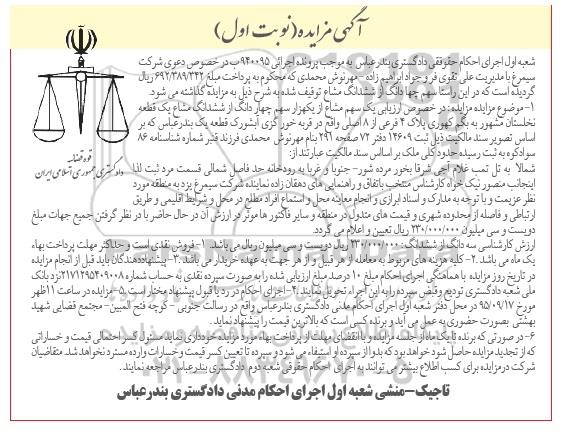 آگهی مزایده(نوبت اول)
شعبه اول اجرای احکام حقوقی دادگستری بندرعباس به موجب پرونده اجرائی ۹۴۰۰۹۵ب در خصوص دعوی شرکت
سیمرغ با مدیریت علی تقوی فر و جواد ابراهیم زاده - مهرنوش محمدی که محکوم به پرداخت مبلغ ۶۹۲/۳۸۹/۳۴۲ ریال
گردیده است که در این راستا سهم چهار دانگ از ششدانگ مشاع توقیف شده به شرح ذیل به مزایده گذاشته می شود.
۱- موضوع مزایده مزایده: در خصوص ارزیابی یک سهم مشاع از یکهزار سهم چهار دانگ از ششدانگ مشاع یک قطعه
نخلستان مشهور به بگیر کهوری پلاک ۴ فرعی از ۸ اصلی واقع در قریه خور گزی آبشورک قطعه یک بندرعباس که بر
اساس تصویر سند مالکیت ذیل ثبت ۱۴۶۰۹ دفتر ۷۲ صفحه ۲۹۶ بنام مهرنوش محمدی فرزند قنبر شماره شناسنامه ۸۶
سوادکوه به ثبت رسیده حدود کلی ملک بر اساس سند مالکیت عبارتند از:
شمالا به تل تمب غلام آجی شرقا بخور مرده شور- جنوبا و غربا به رودخانه حد فاصل شمالی قسمت مرد ثبت لذا
اینجانب منصور نیک خواه کارشناس منتخب باتفاق و راهنمایی های دهقان زاده نماینده شرکت سیمرغ یزد به منطقه مورد
نظر عزیمت و با توجه به مدارک و اسناد ابرازی و انجام معاینه محل و استماع افراد مطلع در محل و شرایط اقلیمی و طریق
ارتباطی و فاصله از محدوده شهری و قیمت های متداول در منطقه و سایر فاکتور ها موثر در ارزش آن در حال حاضر با در نظر گرفتن جمیع جهات مبلغ
دویست و سی میلیون ۲۳۰/۰۰۰/۰۰۰ ریال تعیین و اعلام می گردد.
ارزش کارشناسی سه دانگ از ششدانگ: ۲۳۰/۰۰۰/۰۰۰ ریال دویست و سی میلیون ریال می باشد. ۱- فروش نقدی است و حداکثر مهلت پرداخت بهاء
یک ماه می باشد. ۲- کلیه هزینه های مربوط به معامله از هر قبیل و از هر جهت به عهده خریدار می باشد. ۳- پیشنهاددهندگان باید قبل از انجام مزایده
در تاریخ روز مزایده با هماهنگی اجرای احکام مبلغ ۱۰ درصد مبلغ ارزیابی شده را به صورت سپرده نقدی به حساب شماره ۲۱۷۱۲۹۵۴۰۹۰۰۸ نزد بانک
ملی شعبه دادگستری تودیع و قبض سپرده را به این اجراء تحویل نمایند. ۴- اجرای احکام در رد یا قبول پیشنهاد مختار است. ۵- مزایده در ساعت ۱۱ ظهر
مورخ ۹۵/۰۹/۱۷ در محل دفتر شعبه اول اجرای احکام مدنی دادگستری بندرعباس واقع در رسالت جنوبی - کوچه فتح المبین- مجتمع قضایی شهید
بهشتی بصورت حضوری به عمل می آید و برنده کسی است که بالاترین قیمت را پیشنهاد نماید.
۶- در صورتی که برنده تا یک ماه از جلسه مزایده و با انقضای مهلت از پرداخت بهاء مورد مزایده خودداری نماید مسئول کسر احتمالی قیمت و خساراتی
که از تجدید مزایده حاصل شود خواهد بود که بدوا از سپرده او استیفاء می شود و سپرده تا تعیین کسر قیمت و خسارات وارده مسترد نخواهد شد. متقاضیان
شرکت در مزایده برای کسب اطلاع بیشتر می توانند به اجرای احکام حقوقی شعبه دوم دادگستری بندرعباس مراجعه نمایند.
تاجیک-منشی شعبه اول اجرای احکام مدنی دادگستری بندرعباس
قوه قضائیه
دادگستری جمهوری اسلامی ایران
۰۲۱-۸۸۳۴۹۶۷۰-۵